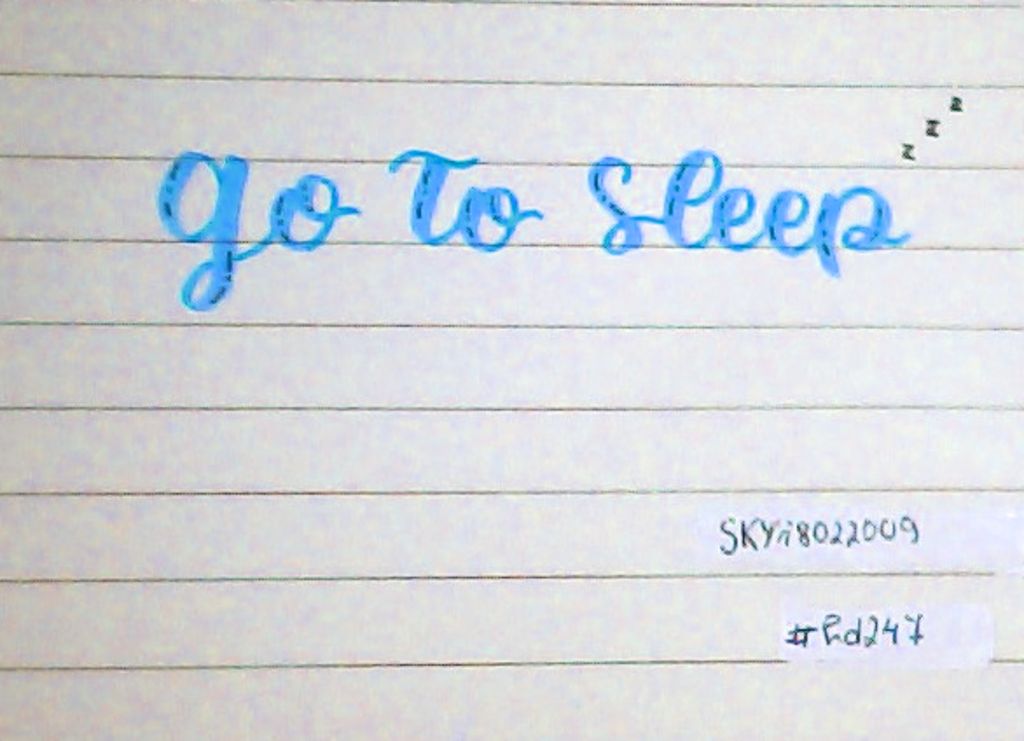 z z z
go to sleep
SKYi8022009
#Rd247